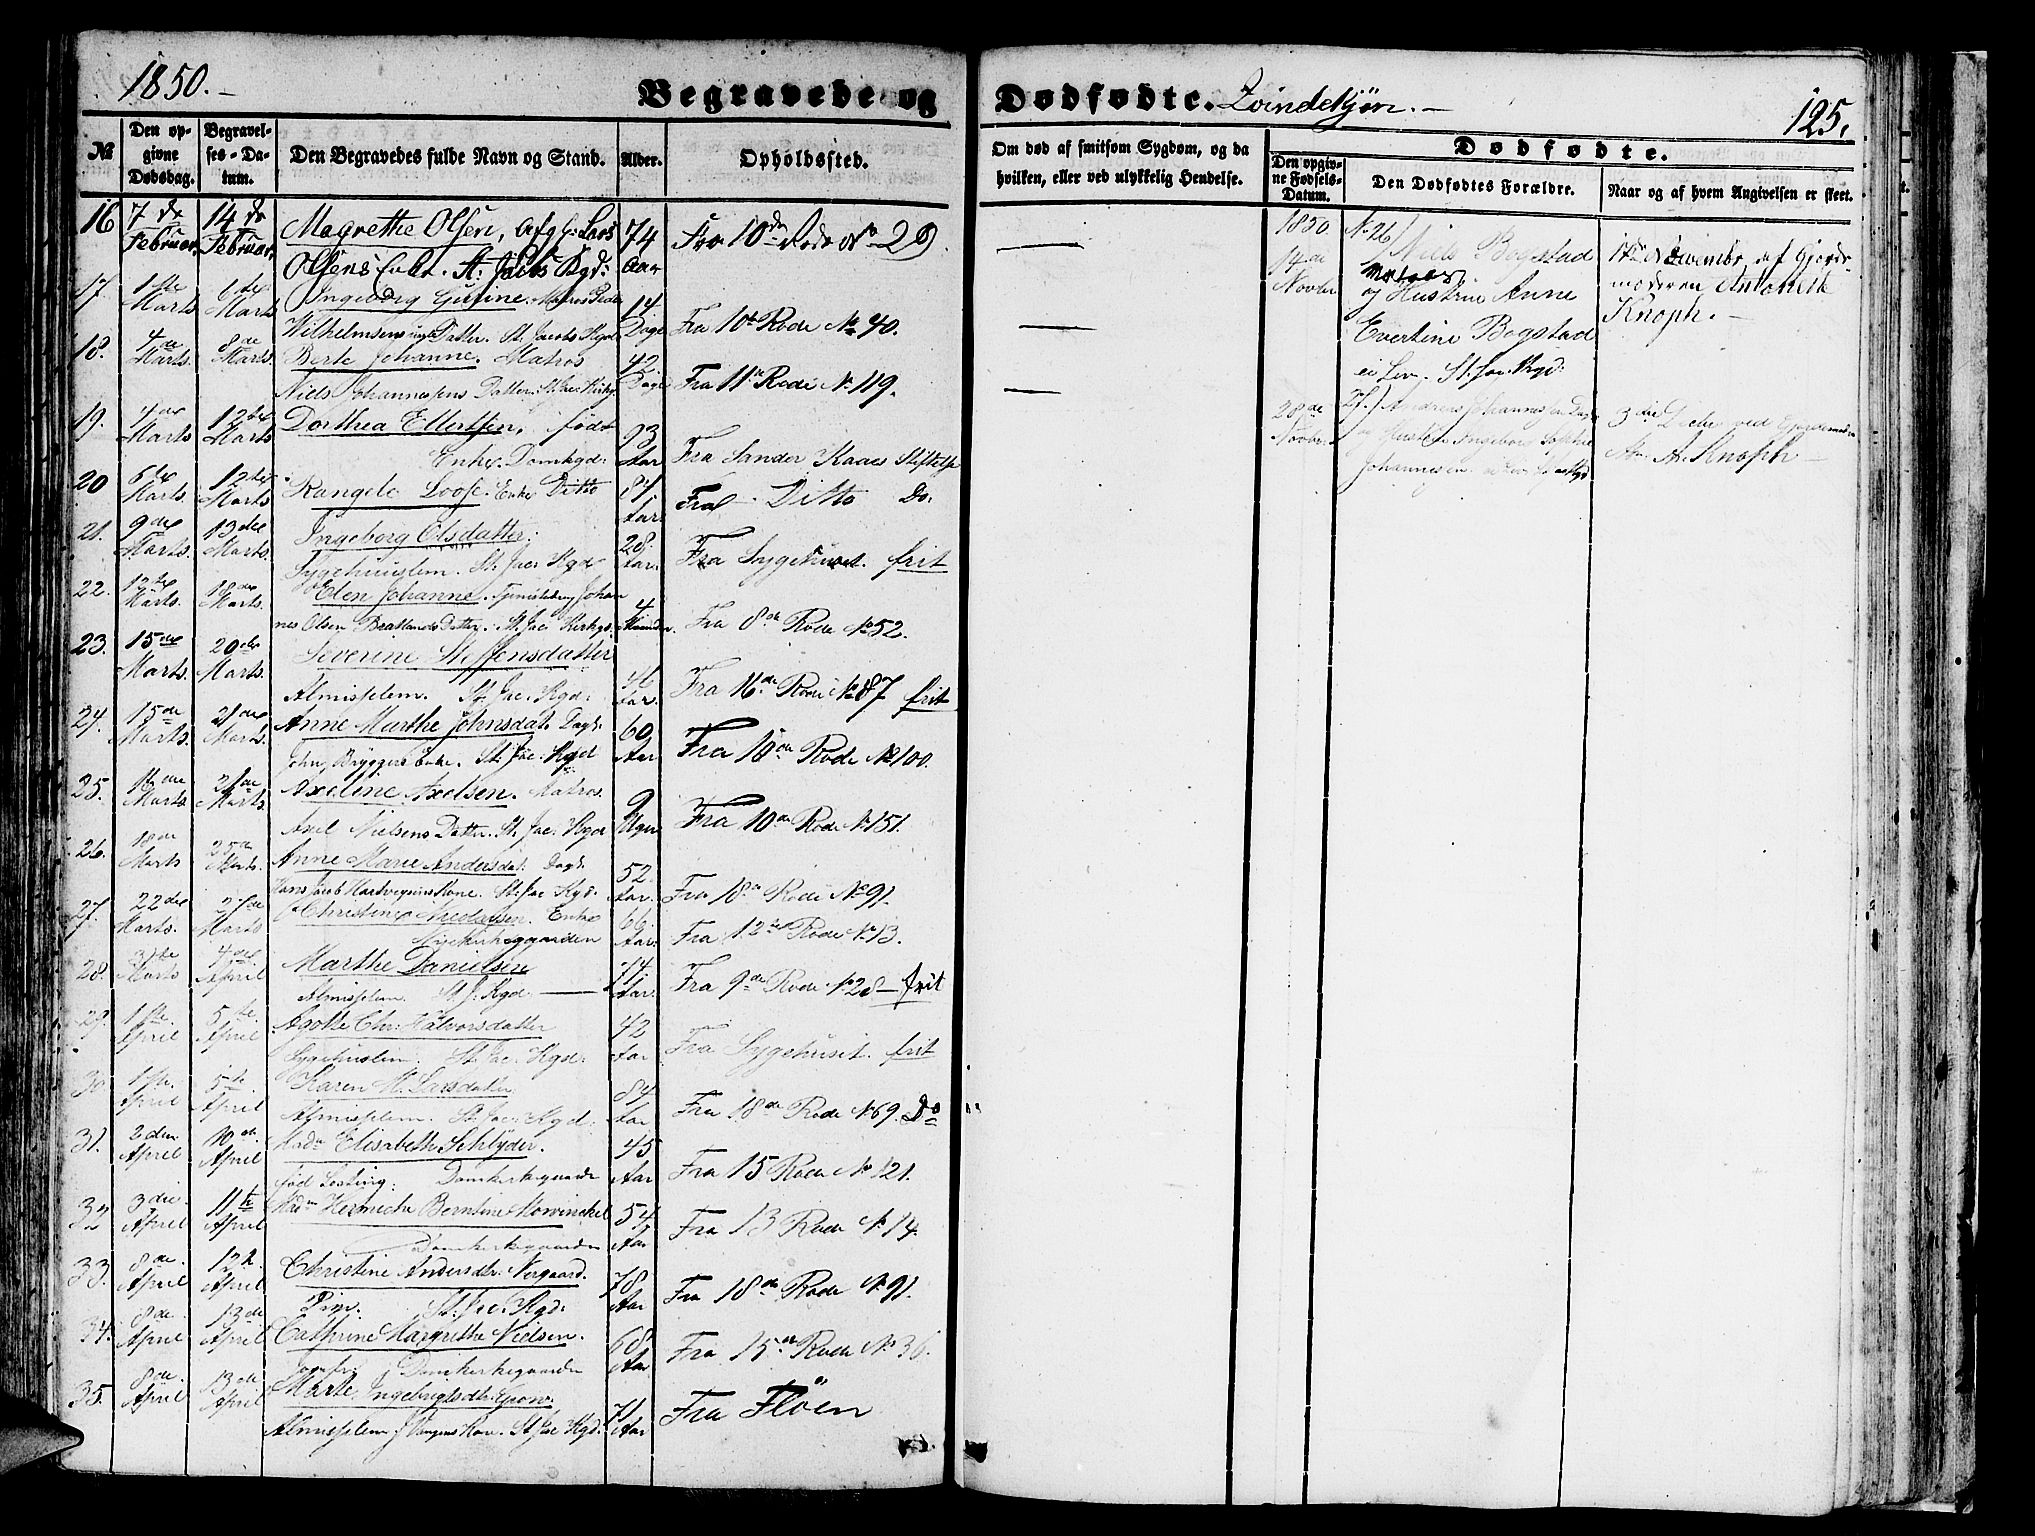 1850.-
Begravede og
Dødfødte. Qvindekjøn.-
125.
№
Den opgivne Dødsdag.
Begravelses-Datum.
Den Begravedes fulde Navn og Stand.
Alder.
Opholdssted.
Om død af smitsom Sygdom, og da hvilken, eller ved ulykkelig Hendelse.
Dødfødte.
Den opgivne Fødsels-Datum.
Den Dødfødtes Forældre.
Naar og af hvem Angivelsen er skeet.
16 7de 14de Magrethe Olsen, afg: Lars 74 Fra 10de Rode No 29
Februar. Februar. Olsens Enke. St: Jacobs Kgd: Aar
17. 1ste 6te Ingeborg Gurine. Matros Peder 14
Marts Marts Wilhelmsens Datter. St. Jacobs Kgd Dage Fra 10de Rode No 40.
18. 4de 8de Berte Johanne. Matros 42
Marts. Marts. Niels Johannessens Datter. St. Jac. Kirkg. Dage Fra 11te Rode No 119.
19. 4de 12te Dorthea Ellertsen, født 93
Marts Marts Enke. Domkgd: Aar Fra Sander Kaaes Stiftelse
20 6te 12te Rangele Loose. Enke Ditto 84
Marts. Marts. Aar. Fra Ditto Do.
21. 9de 13de Ingeborg Olsdatter. 28.
Marts. Marts. Sygehuuslem. St. Jac. Kgd Aar. Fra Sygehuset. frit
22. 12te 18de Elen Johanne. Johan 4
Marts. Marts. nes Olsen Bratlands Datter. St. Jac Kirkg. Maaneder. Fra 8de Rode No 52.
23. 15de 20de Severine Steffensdatter 46
Marts. Marts. Almisselem. St. Jac. Kgd: Aar. Fra 16de Rode No 87 frit
24. 15de 21de Anne Marthe Johnsdat. Dagk. 60
Marts. Marts. John Bryggers Enke. St. Jac. Kgd Aar Fra 18de Rode No 100.
25. 16de 21de Axeline Axelsen. Matros 9
Marts Marts. Axel Nielsens Datter. St. Jac. Kgd Uger Fra 10de Rode No 151.
26. 18de 25de Anne Marie Andersdat. Dagk. 52.
Marts Marts. Hans Jacob Hartvigsens Kone. St. Jac Kgd. Aar. Fra 18de Rode No 91.
27. 22de 27de Christine Enke 66
Marts. Marts Nyekirkegaarden Aar. Fra 12te Rode No 13.
28. 4de Marthe Danielsen 74
Marts April Almisselem. St. J. Kgd. Aar. Fra 9de Rode No 28 - frit
29. 1ste 5te Agothe Chr: Halvorsdatter 42
April April Sygehuslem. St. Jac. Kgd. Aar Fra Sygehuset. frit
30 1ste. 5te Karen M. Larsdatter 84
April April Almisselem. St. Jac. Kgd. Aar Fra 18de Rode No 69. Do
31. 2den 10de. Madm Elisabeth Schlyder. 45
April April født Losting. Domkirkegaarden Aar Fra 15 Rode No 121.
32 3die 11te Madm Hermiche Berntine Mowinckel 54
April April Domkirkegaarden Aar Fra 13 Rode No 14.
33. 8de. 12te Christine Andersdtr. Nergaard. 78
April April St. Jac. Kgd. Aar Fra 18de Rode No 91.
34. 8de. 13de Cathrine Margrethe Nielsen. 68
April April Domkirkegaarden Aar Fra 15de Rode No 36.
35. 8de. 13de Marte Ingebrigtsdtr. 71
April April Almisselem St. Jac Kgd. Aar Fra Fløen
1850. No 26
14de
Novbr
Niels Bogstad
Matros
og Hustrue Anne
Evertine Bogstad
ei Lev. St. Jac. Kgd:
17de November af Gjorde-
moderen Antonette
Knoph.-
28de
Novbr.
27.) Andreas Johannessen
og Hustru Ingeborg Sophie
Johannesen
3die Decbr ved Gjordemoder
A. Knoph